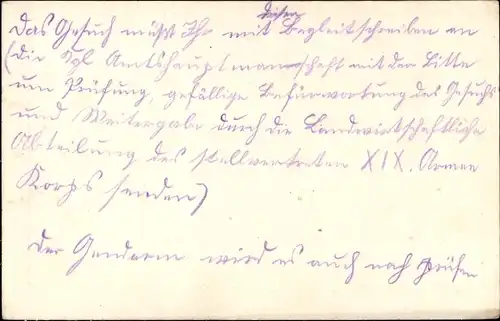 diesen
Das Gesuch müßt Ihr mit Begleitschreiben an
(die Kgl Amtshauptmannschaft mit der Bitte
um Prüfung, gefällige Befürwortung des Gesuchs
und Weitergabe durch die Landwirtschaftliche
Abteilung des stellvertreten XIX. Armee
Korps senden)
Der Gendarm wird es auch noch prüfen